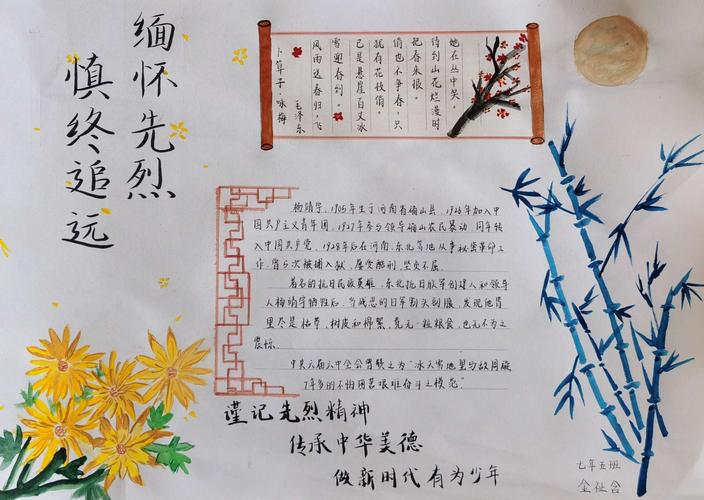 缅怀先烈
慎终追远
卜算子·咏梅
毛泽东
风雨送春归，飞
雪迎春到。
已是悬崖百丈冰
犹有花枝俏。
俏也不争春，只
把春来报。
待到山花烂漫时
她在丛中笑。
杨靖宇，1905年生于河南省确山县，1926年加入中
国共产主义青年团，1927年参与领导确山农民暴动，同年转
入中国共产党。1928年后在河南、东北等地从事秘密革命工
作，曾5次被捕入狱，屡受酷刑，坚贞不屈。
著名的抗日民族英雄，东北抗日联军创建人和领导
人杨靖宇牺牲后，当残忍的日军割头剖腹，发现他胃
里尽是枯草、树皮和棉絮，竟无一粒粮食，也无不为之
震惊。
中共六届六中全会曾赞之为“冰天雪地里与敌周旋
7年多的不怕困苦艰难奋斗之模范”
谨记先烈精神
传承中华美德
做新时代有为少年
七年五班